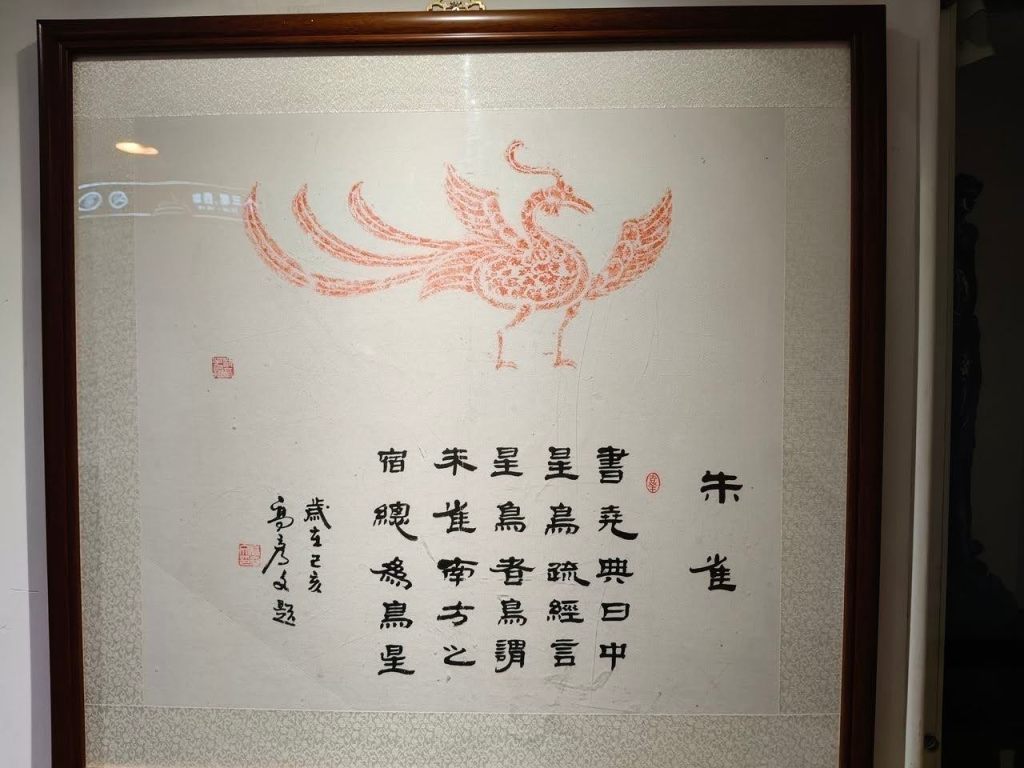 朱雀
書堯典曰中
星鳥疏經言
星鳥者鳥謂
朱雀南方之
宿總為鳥星
歲在己亥
高彥文題